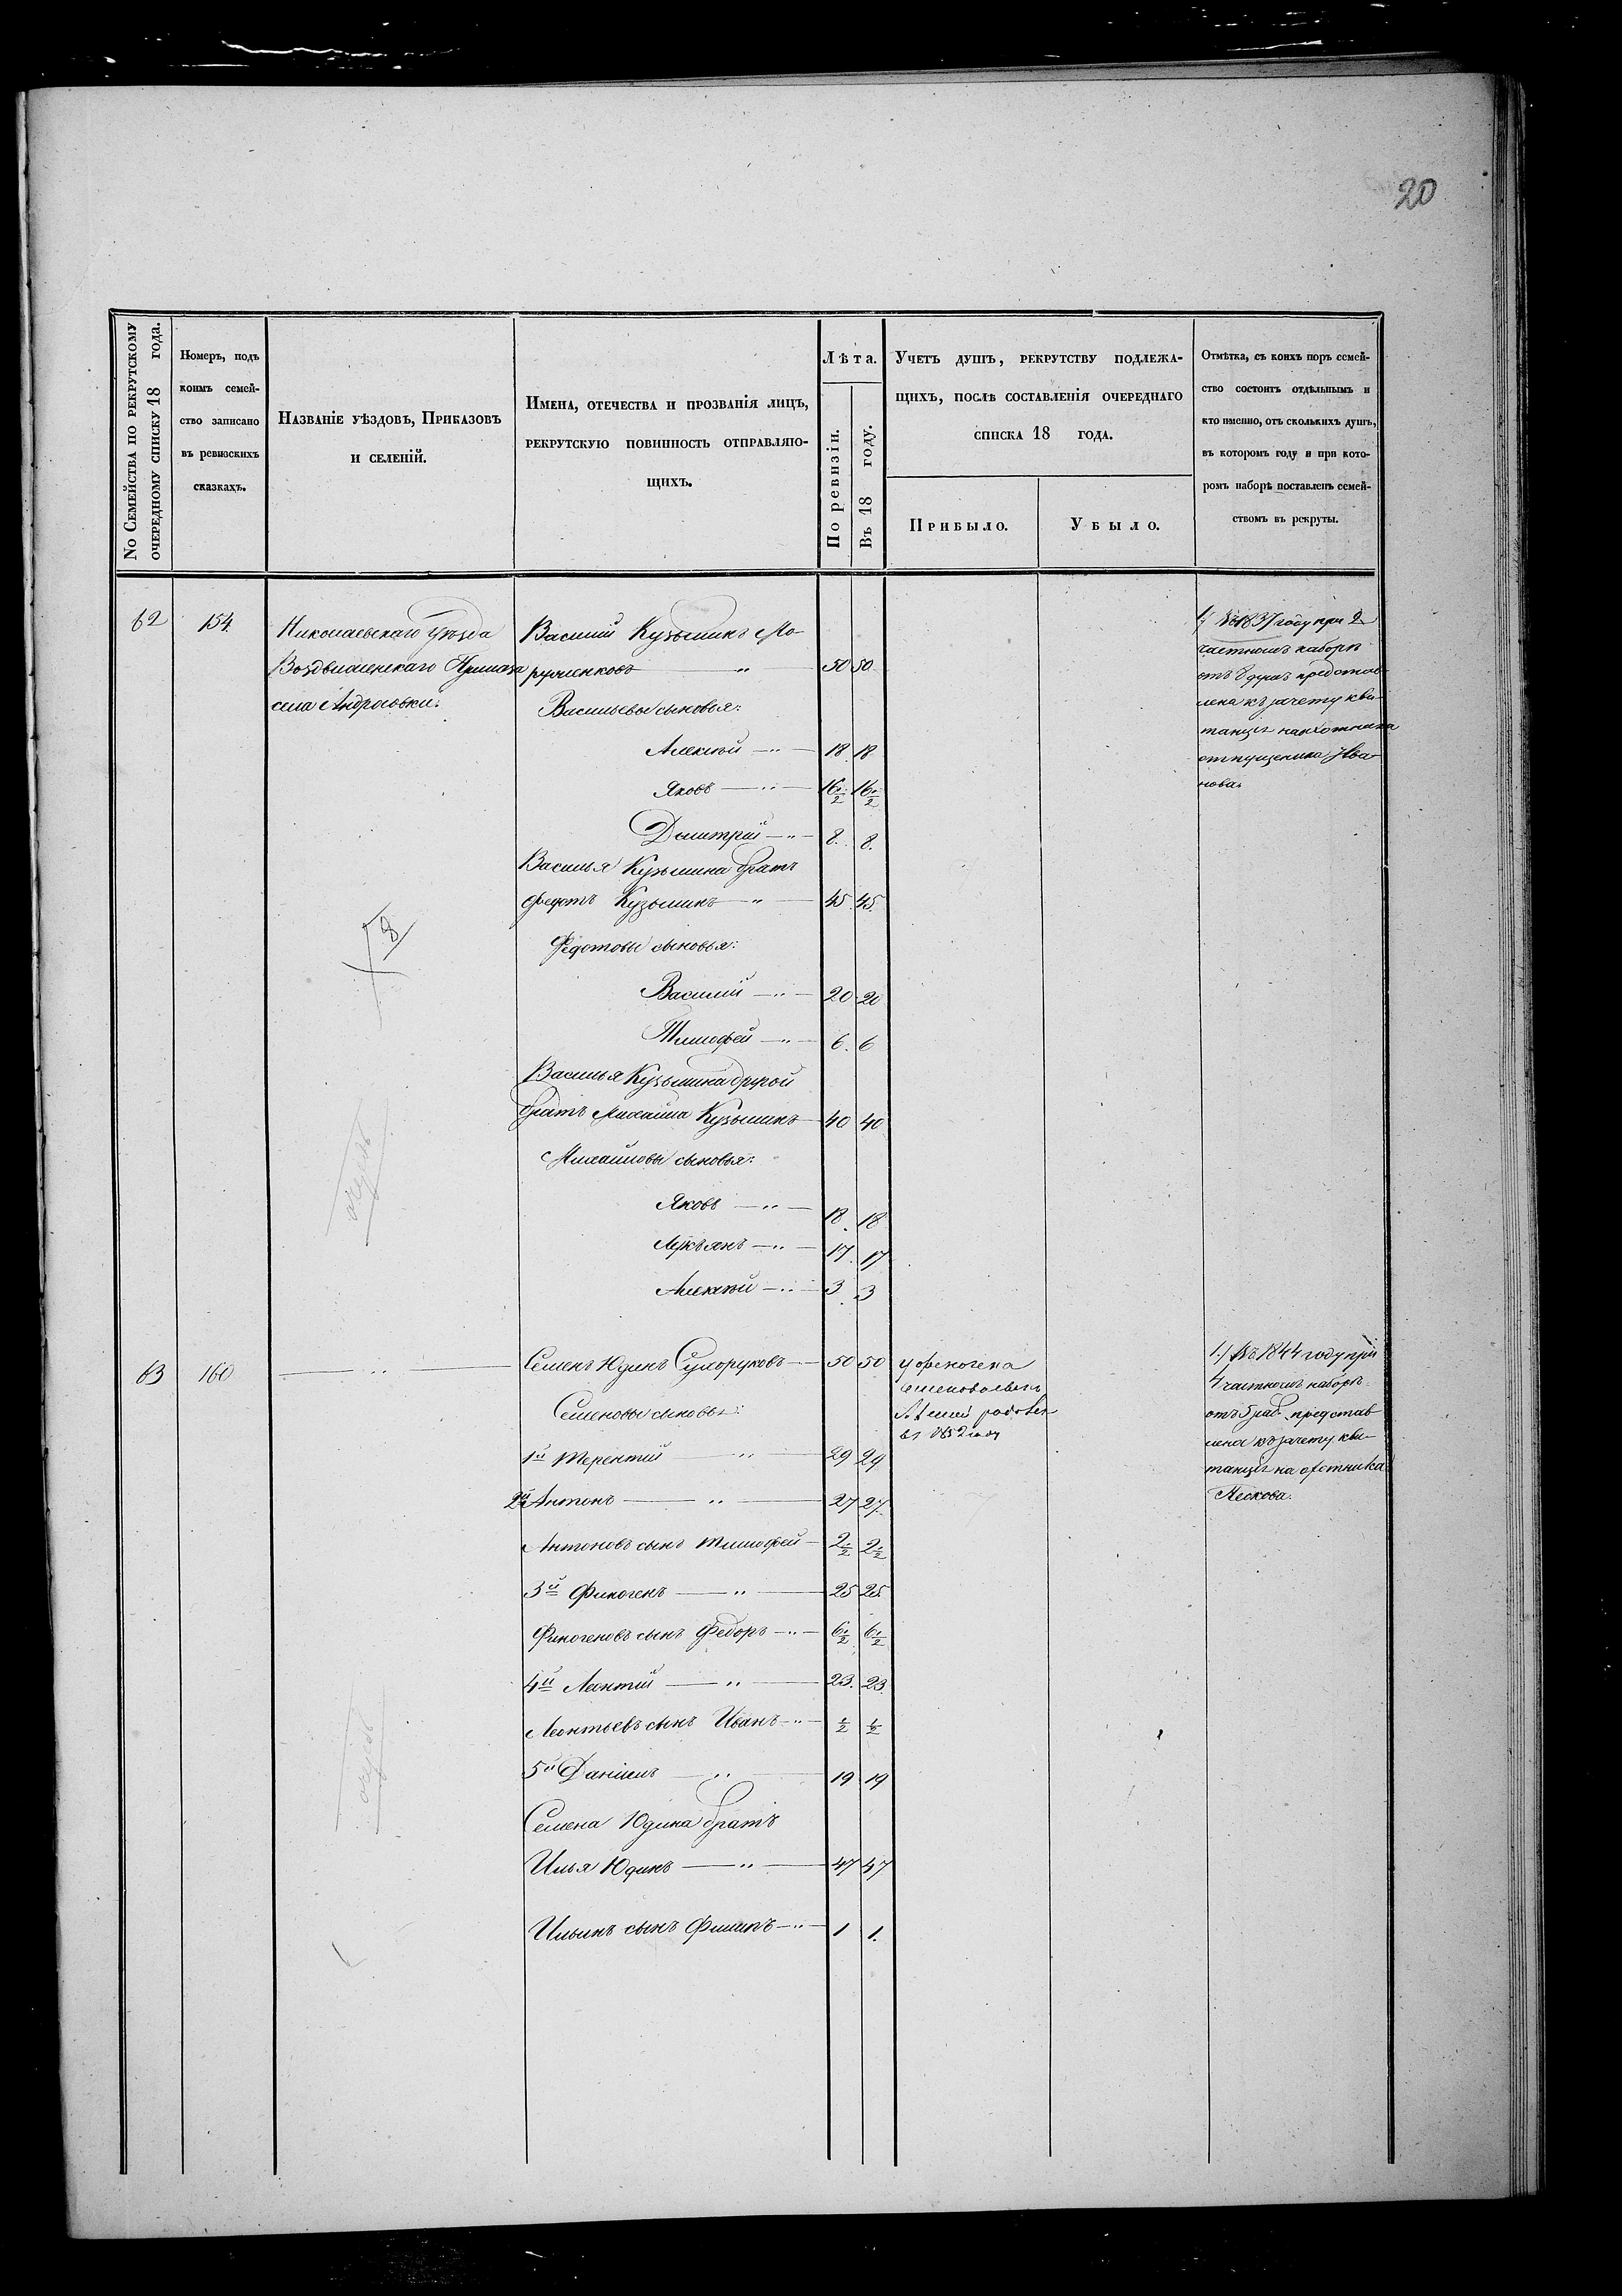 20
№ Семейства по рекрутскому
очередному списку 18 года.
Номеръ, подъ
коимъ семей-
ство записано
въ ревизскихъ
сказкахъ.
Названіе уѣздовъ, Приказовъ
и селеній.
Имена, отечества и прозванія лицъ,
рекрутскую повинность отправляю-
щихъ.
Лѣта.
По ревизіи.
Въ 18 году.
Учетъ душъ, рекрутству подлежа-
щихъ, послѣ составленія очереднаго
списка 18 года.
Прибыло.
Убыло.
Отмѣтка, съ коихъ поръ семей-
ство состоитъ отдѣльнымъ и
кто именно, отъ сколькихъ душъ,
въ которомъ году и при кото-
ромъ наборѣ поставленъ семей-
ствомъ въ рекруты.
62 154.
Николаевскаго Уѣзда
Воздвиженскаго Приказа
села Андросовки:
Василій Кузьминъ Мо-
50 50
Васильевы сыновья:
Алексѣй 18 18
Яковъ 16½ 16½
Дмитрій 8. 8.
Василья Кузьмина братъ
Федотъ Кузьминъ 45 45.
Федотовы сыновья:
Василій 20 20
Тимофей 6. 6
Василья Кузьмина другой
братъ Михайла Кузьминъ 40 40
Михайловы сыновья:
Яковъ 18 18
Лукьянъ 17. 17
Алексѣй 3 3
1) Въ 1837 году при 2
частномъ наборѣ
отъ 8 душъ представ-
лена къ зачету кви-
танція на охотника
отпущенника Ива-
нова.
8
63 160
Семенъ Юдинъ Сухоруковъ 50 50
Семеновы сыновья:
1й Терентій 29 29
2й Антонъ 27 27.
Антоновъ сынъ Тимофей 2½ 2½
3й Финогенъ 25 25.
Финогеновъ сынъ Федоръ 6½ 6½
4й Леонтій 23. 23.
Леонтьевъ сынъ Иванъ ½ ½
5й Даніилъ 19 19
Семена Юдина братъ
Илья Юдинъ 47 47
Ильинъ сынъ Филипъ 1 1.
у Феногена
родовен
въ 1852 году
1.) Въ 1844 году при
4 частномъ наборѣ
отъ 5 раб. представ-
лена къ зачету кви-
танція на охотника
Пескова.